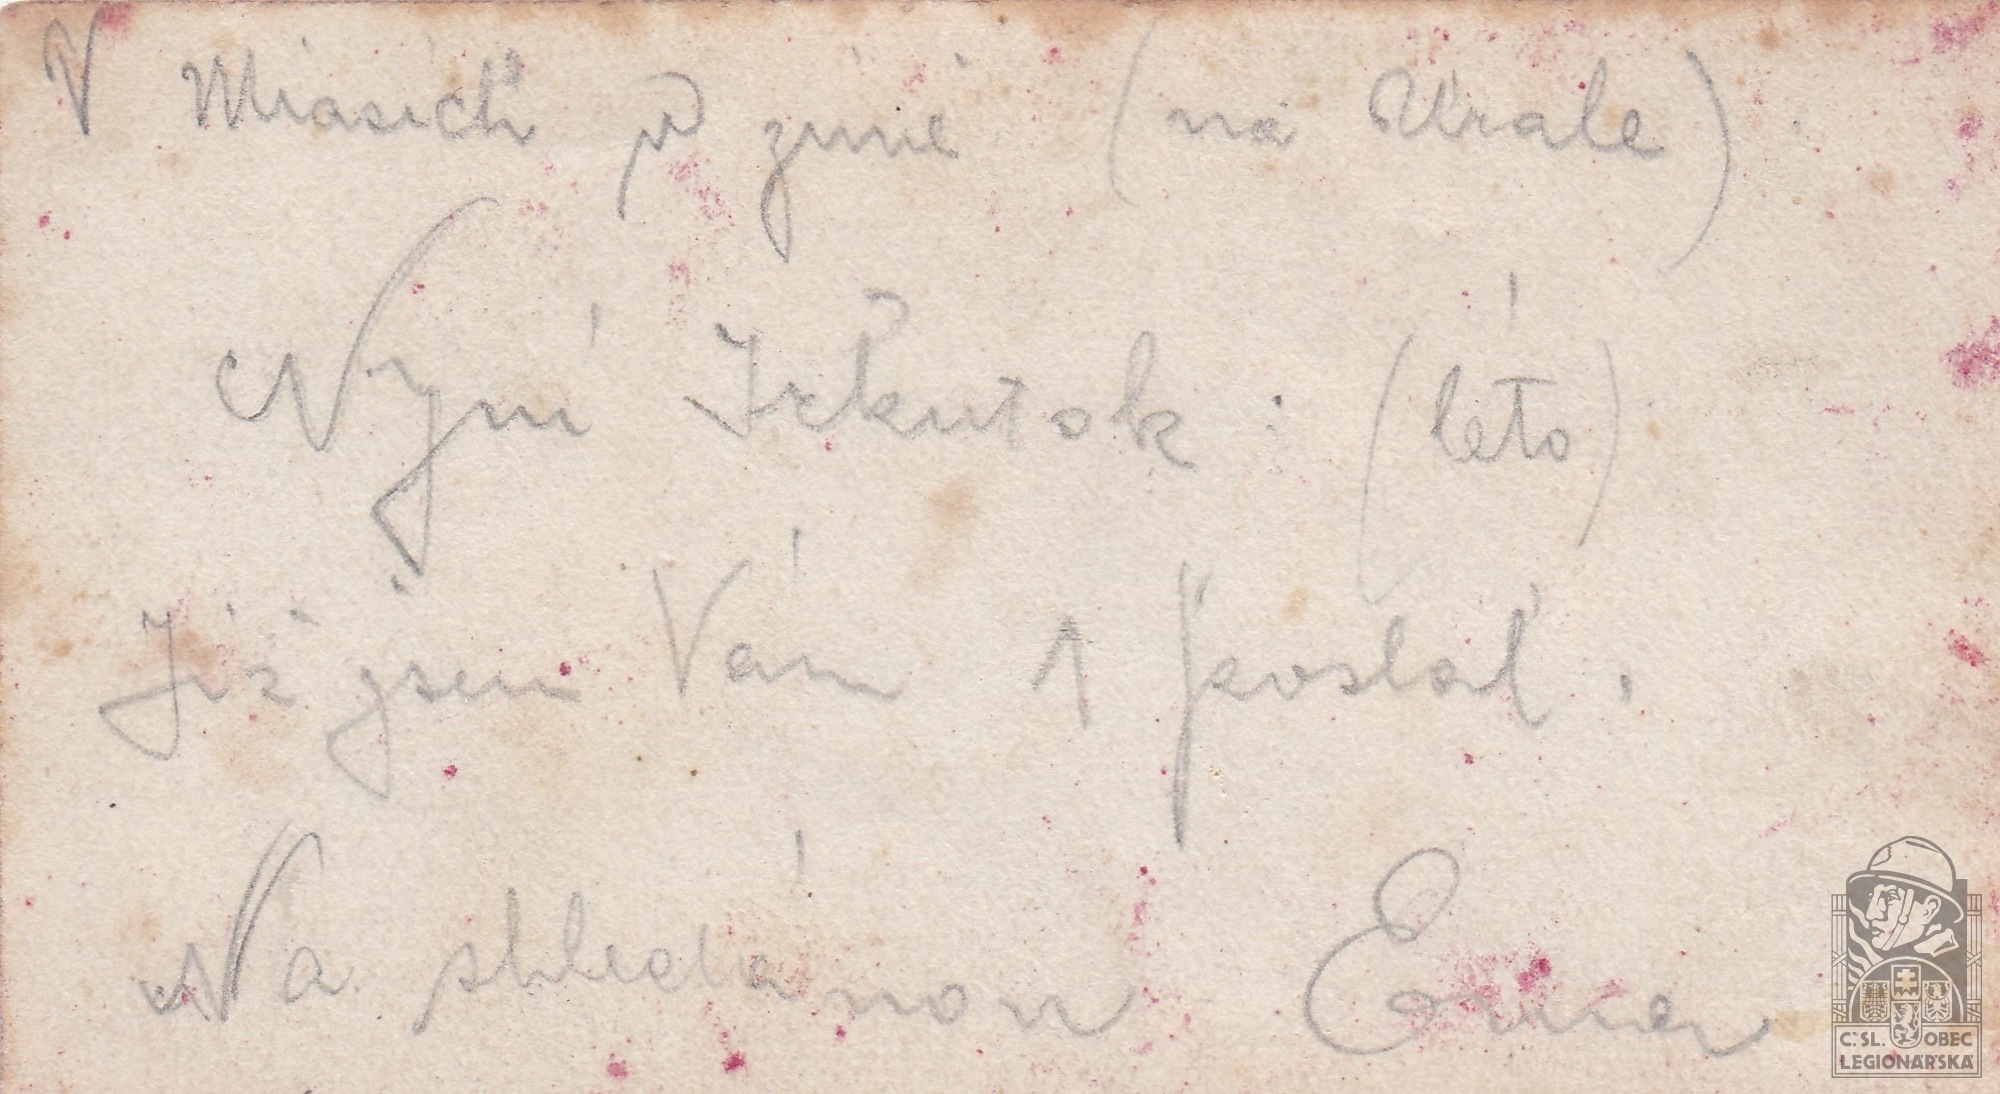 V Miasích v zimě (na Urale)
Nyní Irkutsk: (léto)
Již jsem Vám 1 poslal.
Na shledanou
C.SL. OBEC
LEGIONÁŘSKÁ